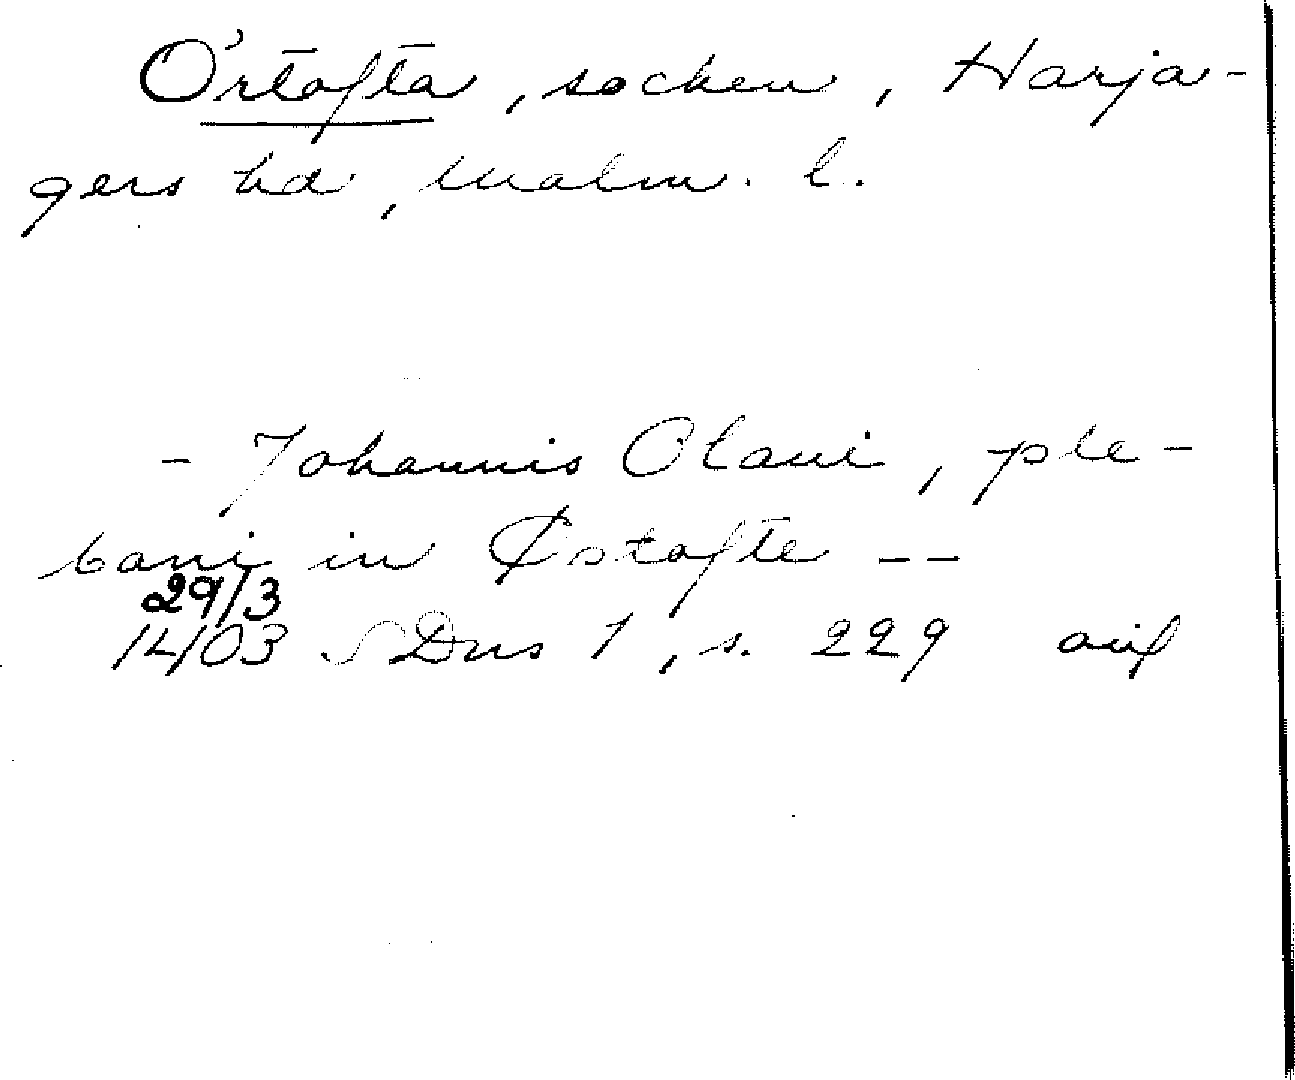 Örtofta, socken, Harja-
gers hd, malm. l.
- Johannis Olaui, ple-
bani in Østofte --
29/3
1403 SDns 1, s. 229 avs